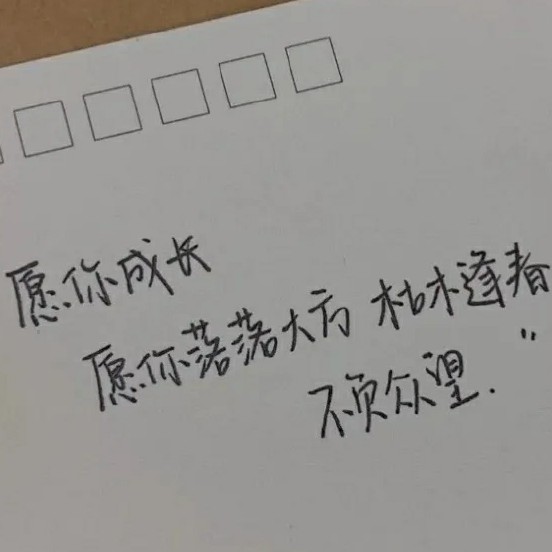 愿你成长
愿你落落大方 枯木逢春
不负众望. "